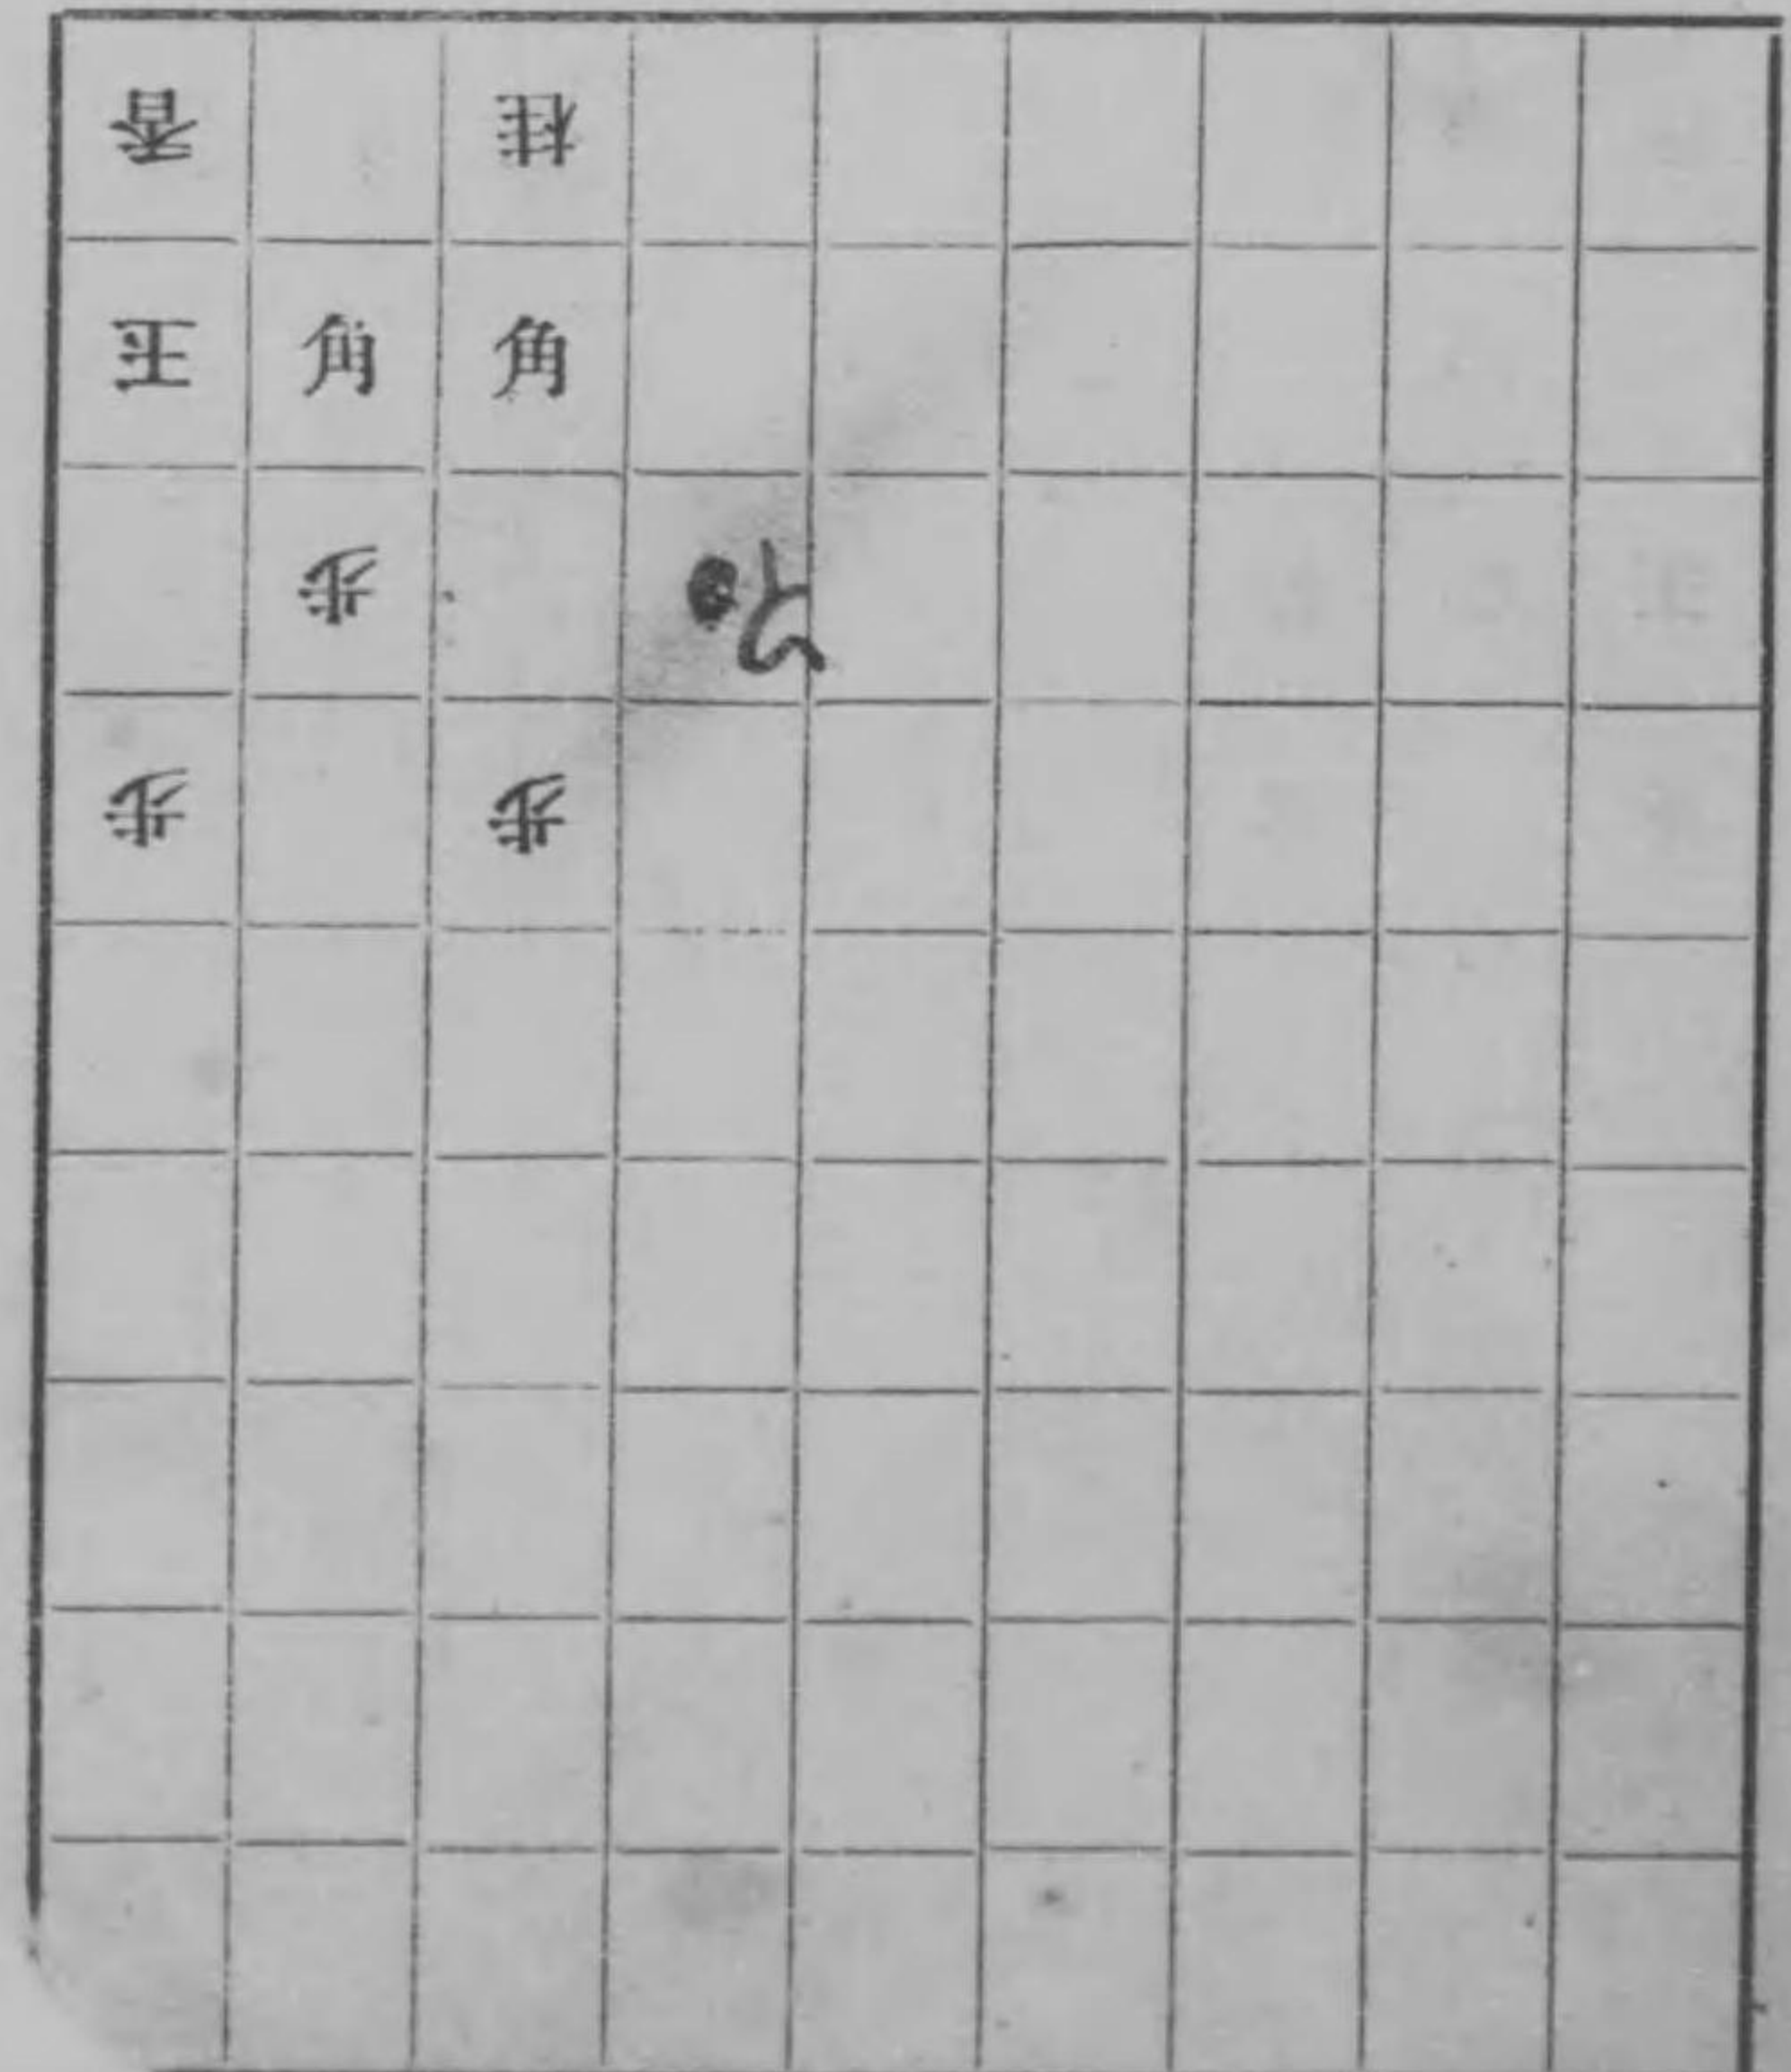 香 桂
玉 角 角
歩
歩 歩